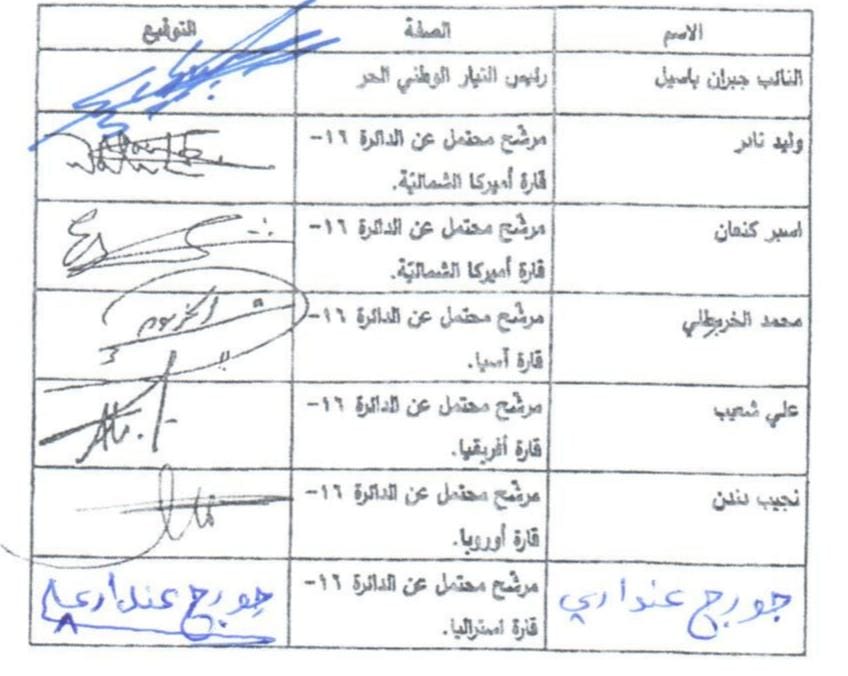 الاسم الصفة التوقيع
النائب جبران باسيل رئيس التيار الوطني الحر
وليد مرشّح محتمل عن الدائرة ١٦-
قارة أميركا الشماليّة.
اسبر كنعان مرشّح محتمل عن الدائرة ١٦-
قارة أميركا الشماليّة.
محمد الخربطلي مرشّح محتمل عن الدائرة ١٦-
قارة آسيا.
علي شعيب مرشّح محتمل عن الدائرة ١٦-
قارة أفريقيا.
نجيب دندن مرشّح محتمل عن الدائرة ١٦-
قارة أوروبا.
جورج عنداري مرشّح محتمل عن الدائرة ١٦- جورج عنداري
قارة استراليا.